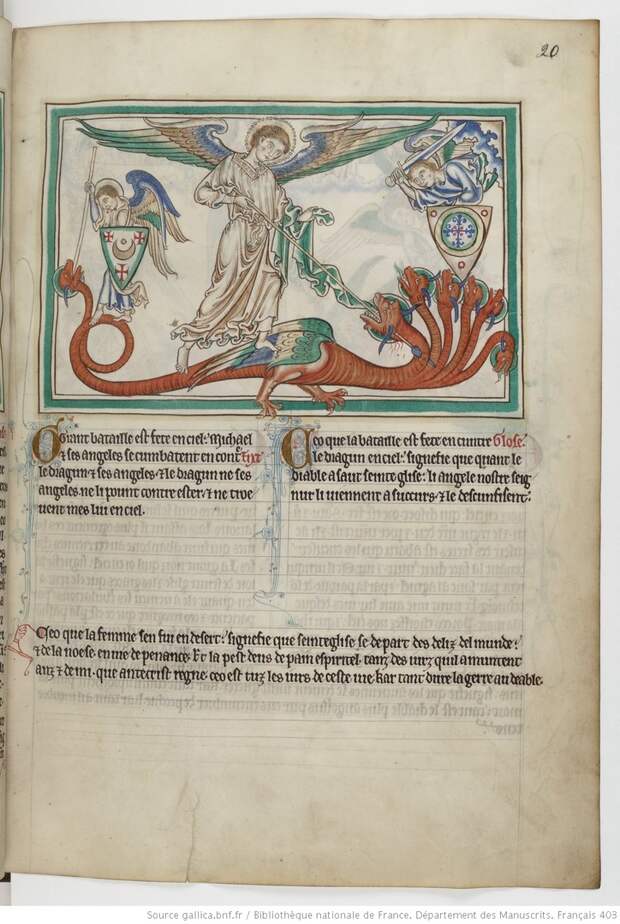 20
Grant bataille est fete en ciel: Michael
& ses angeles se cumbatent en cont Tixt
le dragun & ses angeles. & le dragun ne ses
angeles ne li point contre ester. & ne trove
uent mes liu en ciel.
Ceo que la bataille est fete en cuntre Glose
le dragun en ciel: signefie que quant le
diable asaut seinte glise: li angele nostre seig
nur li uiennent a succurs. & le descunfisent:
Ceo que la femme sen fui en desert: signefie que seinte glise se depart des deliz del munde:
& de la noese. en uie de penance. Et la pest deus de pain espiritel. tanz des iurz quil amuntent
anz & demi. que antecrist regne. ceo est tuz les iurs de ceste uie. kar tant dure la gerre au deable.
Source gallica.bnf.fr / Bibliothèque nationale de France. Département des Manuscrits. Français 403